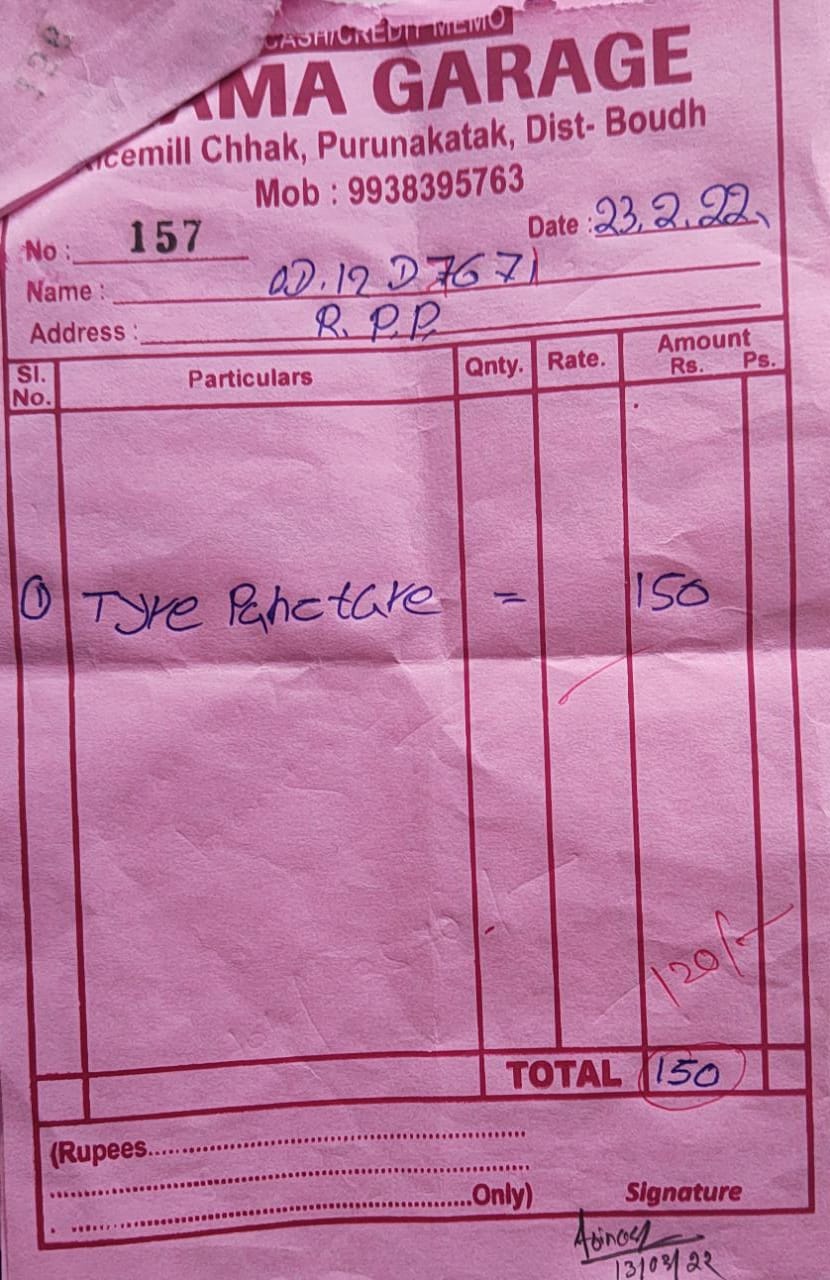 CASH/CREDIT MEMO
AMA GARAGE
icemill Chhak, Purunakatak, Dist- Boudh
Mob : 9938395763
No : 157
Date : 23.2.22
Name : OD.12 D 7671
Address : R.P.P.
Sl. No. Particulars Qnty. Rate. Amount Rs. Ps.
① Tyre Puncture = 150
120/-
TOTAL 150
(Rupees
Only)
Signature
13/03/22